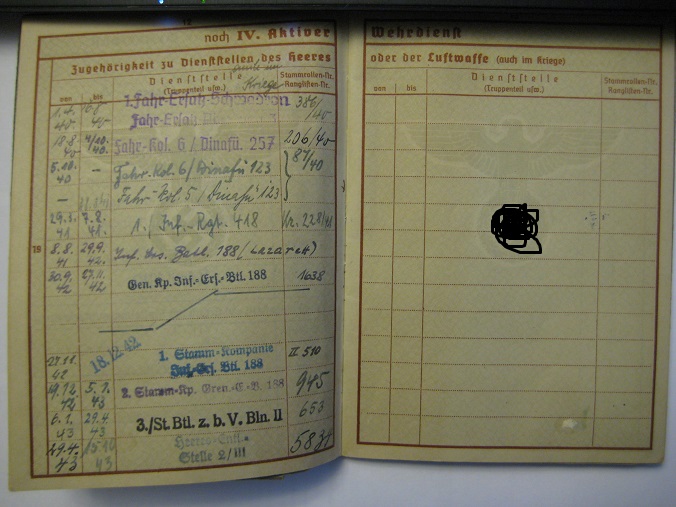 12
noch IV. Aktiver
Zugehörigkeit zu Dienststellen des Heeres
Dienststelle
(Truppenteil usw.)
Kriege
Stammrollen-Nr.
Ranglisten-Nr.
von
bis
1. Fahr-Ersatz-Schwadron
386/40
Fahr-Ersatz
3
18.8.
40
4/10.
40.
Fahr-Kol. 6 / Dinafü. 257
206/40
5.10.
40
–
Fahr-Kol. 6 / Dinafü 123
87/40
–
Fahr-Kol. 5 / Dinafü 123
29.1.
41
7.8.
41.
1. / Inf.-Rgt. 418
Nr. 228/41
19
8.8.
41
29.9.
42.
Inf. Ers. Batl. 188 (Lazarett)
30.9.
42
27.11.
42
Gen. Kp. Inf.-Ers.-Btl. 188
1638
18.12.42
27.11.
42
1. Stamm-Kompanie
II 510
Inf.-Ers. Btl. 188
19.12.
42
5.1.
43
2. Stamm-Kp. Gren.-E.-B. 188
945
6.1.
43
29.4.
43
3./St. Btl. z. b. V. Bln. II
653
29.4.
43
15.10
43
Heeres-Entl.-
Stelle 2/III
5831
Wehrdienst
oder der Luftwaffe (auch im Kriege)
Dienststelle
(Truppenteil usw.)
Stammrollen-Nr.
Ranglisten-Nr.
von
bis